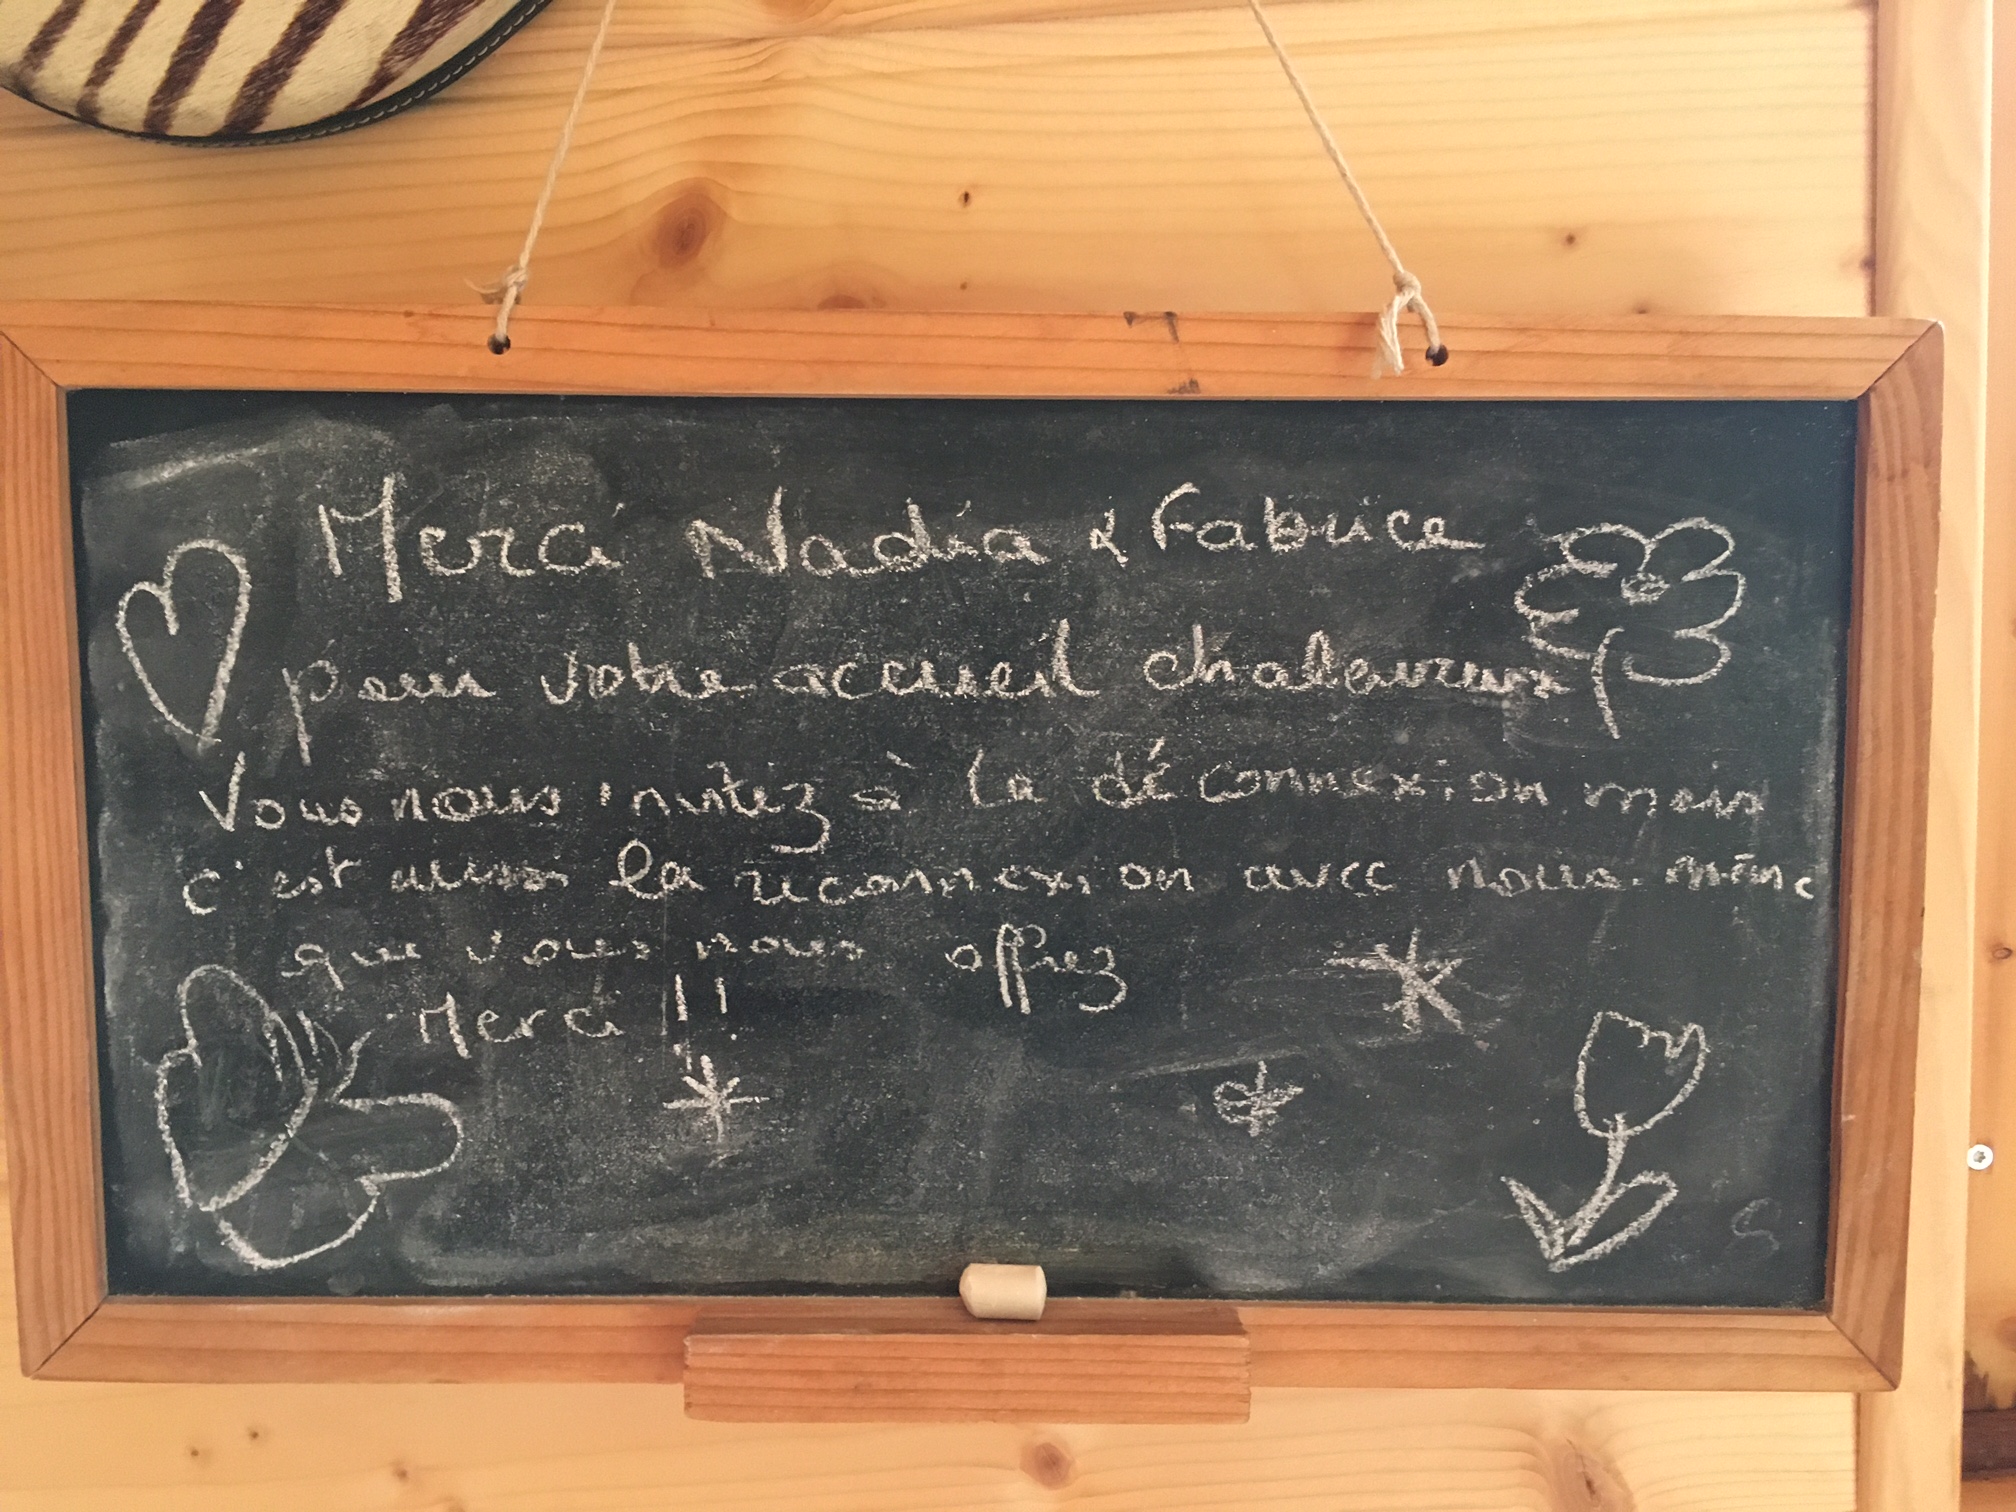 Merci Nadia & Fabrice
pour votre accueil chaleureux
Vous nous invitez à la déconnexion mais
c'est aussi la reconnexion avec nous-même
que vous nous offrez
Merci !!